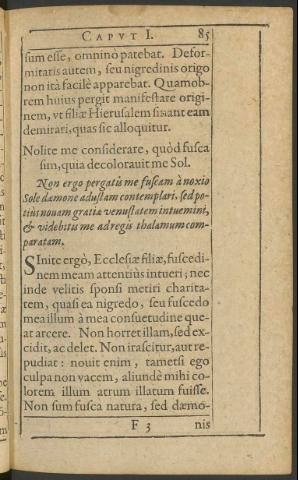 CAPVT I. 85
sum esse, omninò patebat. Defor-
mitatis autem, seu nigredinis origo
non ità facilè apparebat. Quamob-
rem huius pergit manifestare origi-
nem, vt filiæ Hierusalem sinant eam
demirari, quas sic alloquitur.
Nolite me considerare, quòd fusca
sim, quia decolorauit me Sol.
Non ergo pergatis me fuscam à noxio
Sole dæmone adustam contemplari, sed po-
tiùs nouam gratia venustatem intuemini,
& videbitis me ad regis thalamum com-
paratam.
SInite ergò, Ecclesiæ filiæ, fuscedi-
nem meam attentiùs intueri; nec
inde velitis sponsi metiri charita-
tem, quasi ea nigredo, seu fuscedo
mea illum à mea consuetudine que-
at arcere. Non horret illam, sed ex-
cidit, ac delet. Non irascitur, aut re-
pudiat: nouit enim, tametsi ego
culpa non vacem, aliundè mihi co-
lorem illum atrum illatum fuisse.
Non sum fusca natura, sed dæmo-
F 3 nis